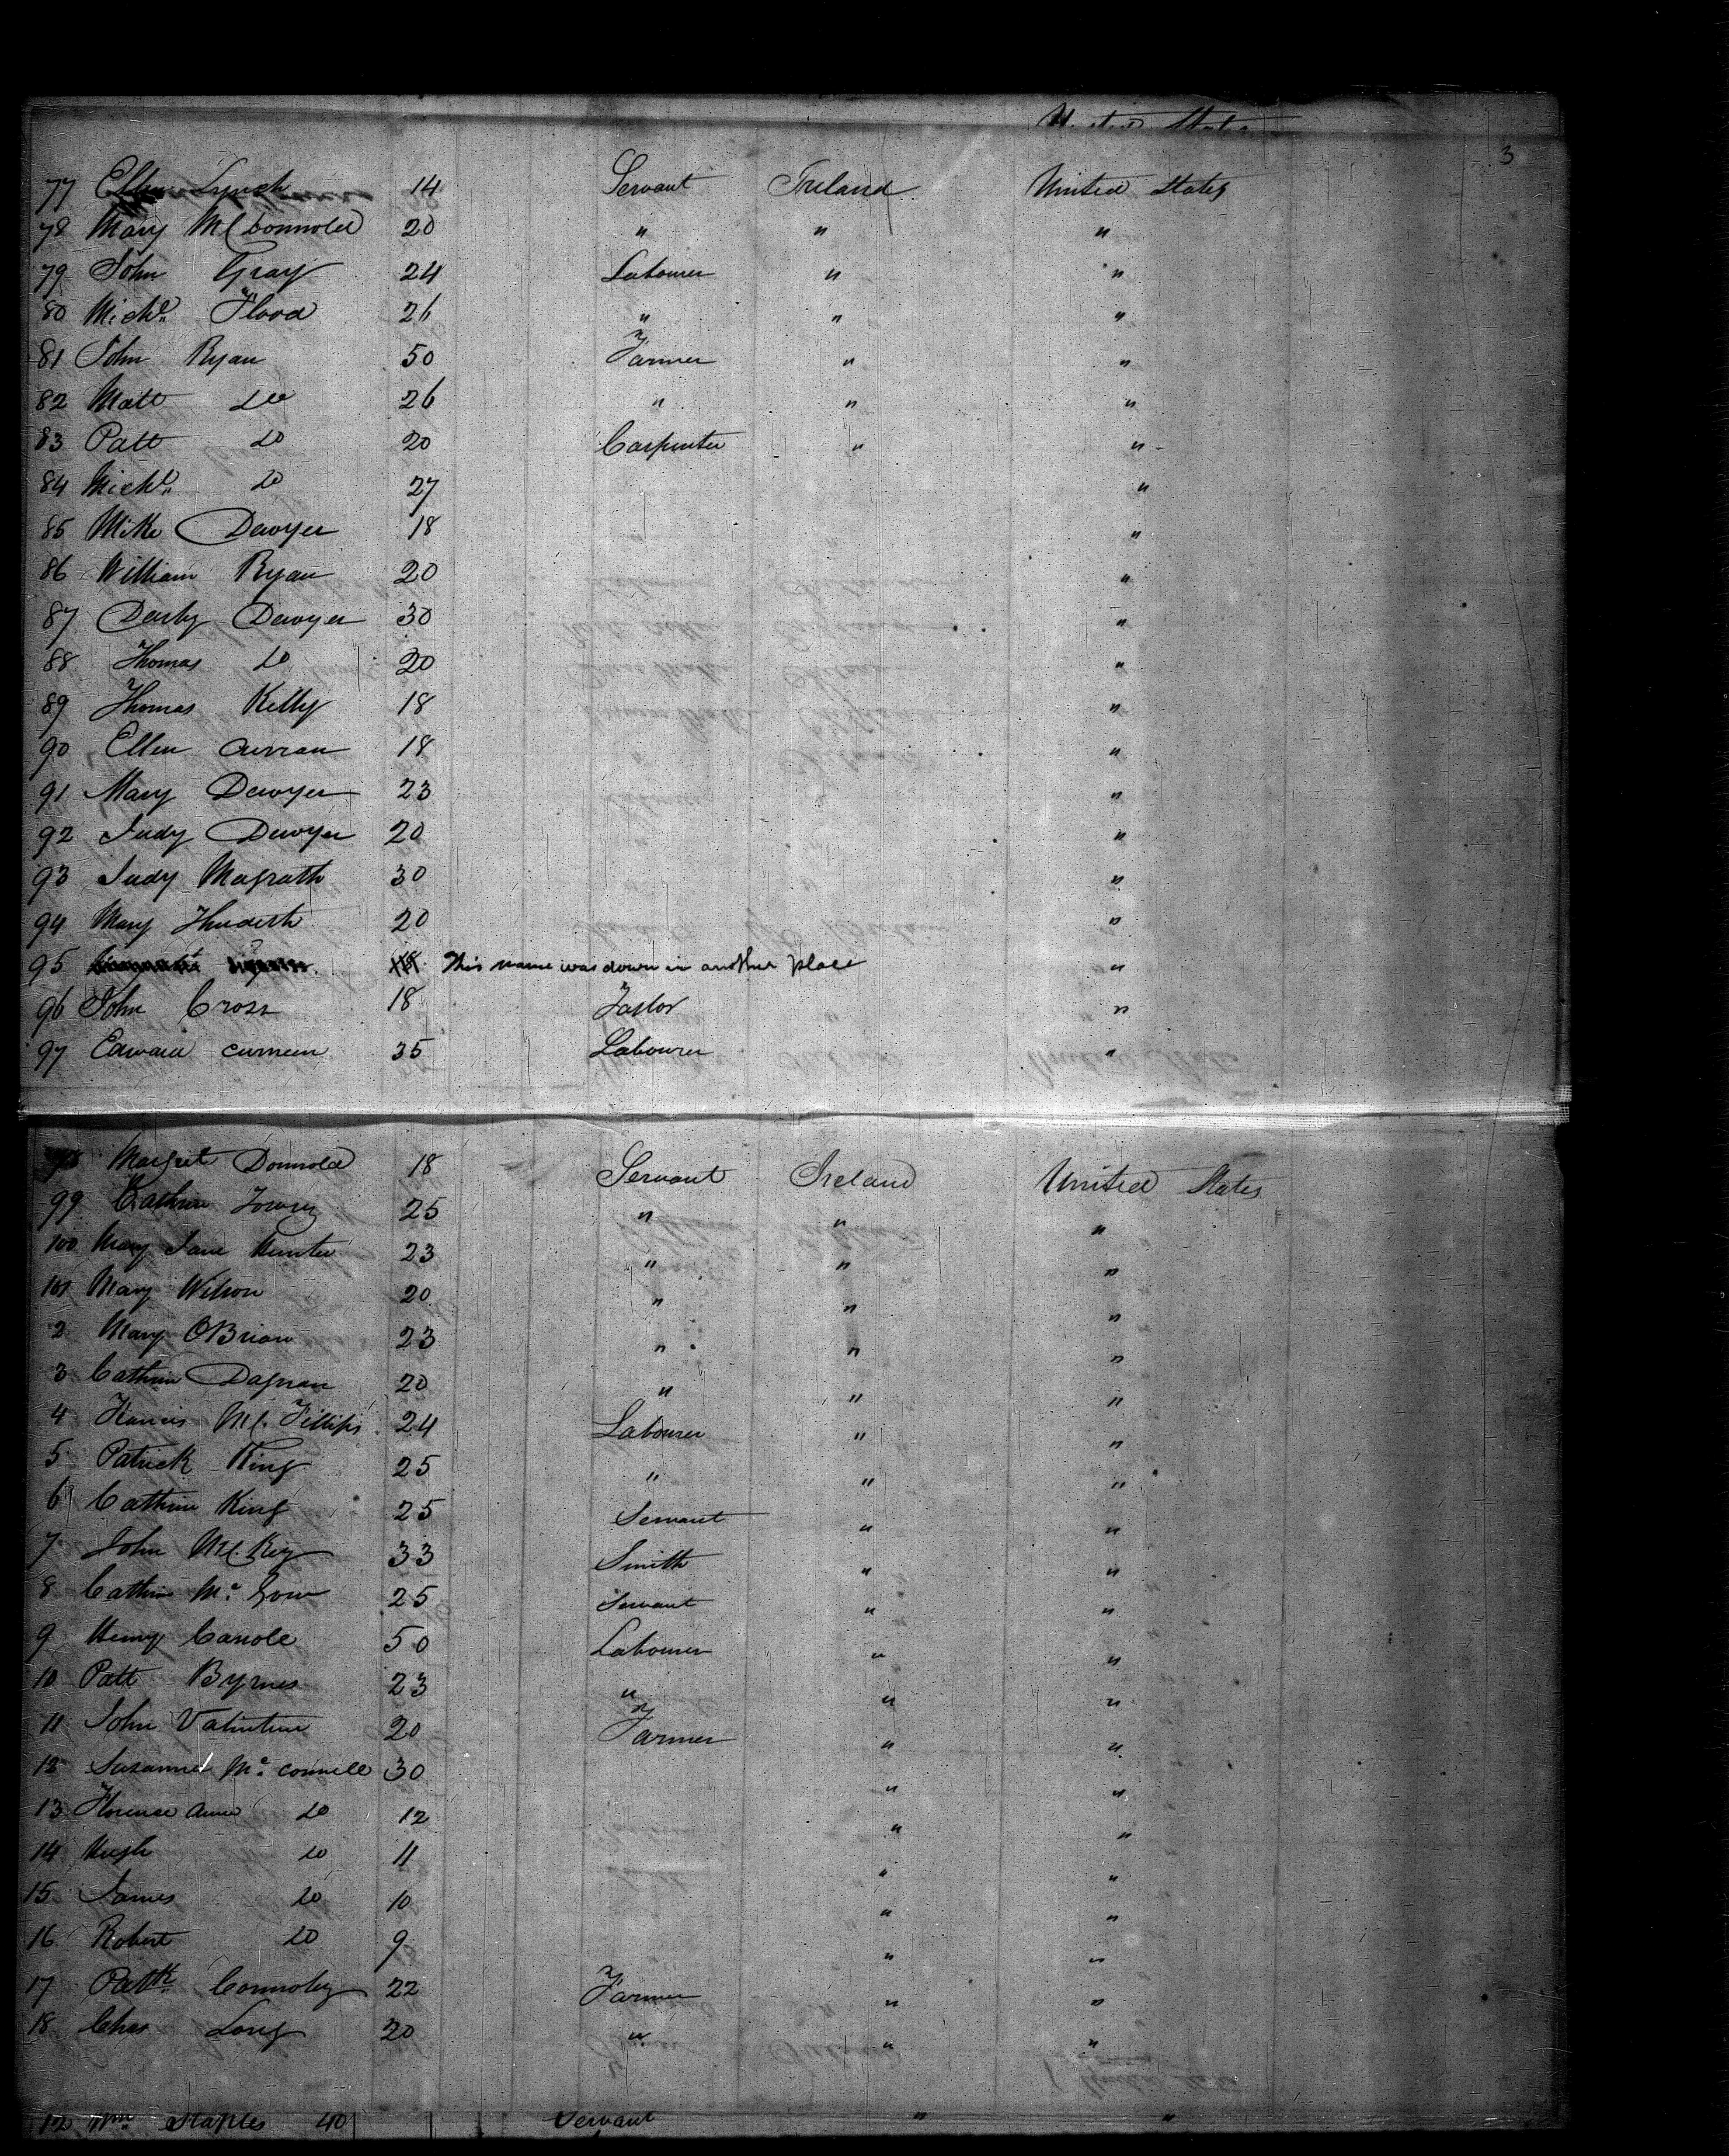 United States
3
77 Ellen Lynch 14 Servant Ireland United States
78 Mary McConnold 20 " " "
79 John Gray 24 Labourer " "
80 Michl. Flood 26 " " "
81 John Ryan 50 Farmer " "
82 Matt do 26 " " "
83 Patt do 20 Carpenter " "
84 Michl. do 27 "
85 Mike Dewyer 18 "
86 William Ryan 20 "
87 Darby Dewyer 30 "
88 Thomas do 20 "
89 Thomas Kelly 18 "
90 Ellen Curran 18 "
91 Mary Dewyer 23 "
92 Judy Dewyer 20 "
93 Judy Magrath 30 "
94 Mary 20 "
95 This name was down in another place "
96 John Cross 18 Taylor "
97 Edward Curneen 35 Labourer "
98 Margret Donnold 18 Servant Ireland United States
99 Cathrine 25 " " "
100 Mary Jane Hunter 23 " " "
101 Mary Wilson 20 " " "
2 Mary OBrian 23 " " "
3 Cathrin Dagnan 20 " " "
4 Francis Mc. Fillips 24 Labourer " "
5 Patrick King 25 " " "
6 Cathrin King 25 Servant " "
7 John Mc. Key 33 Smith " "
8 Cathrin Mc. Gow 25 Servant " "
9 Henry Carrole 50 Labourer " "
10 Patt Byrnes 23 " " "
11 John Valintine 20 Farmer " "
12 Susanna Mc. Connell 30 " "
13 Florense Anne do 12 " "
14 Hugh do 11 " "
15 James do 10 " "
16 Robert do 9 " "
17 Pattk. Connoley 22 Farmer " "
18 Chas Long 20 " " "
12 Wm. Staples 40 Servant " "